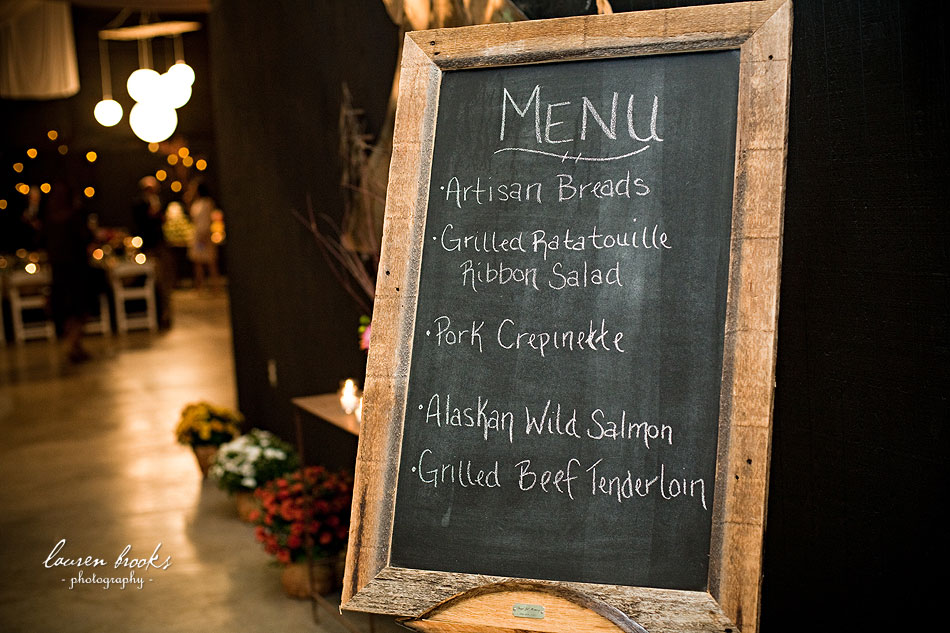 MENU
·Artisan Breads
·Grilled Ratatouille
Ribbon Salad
·Pork Crepinette
·Alaskan Wild Salmon
·Grilled Beef Tenderloin
lauren brooks
- photography -